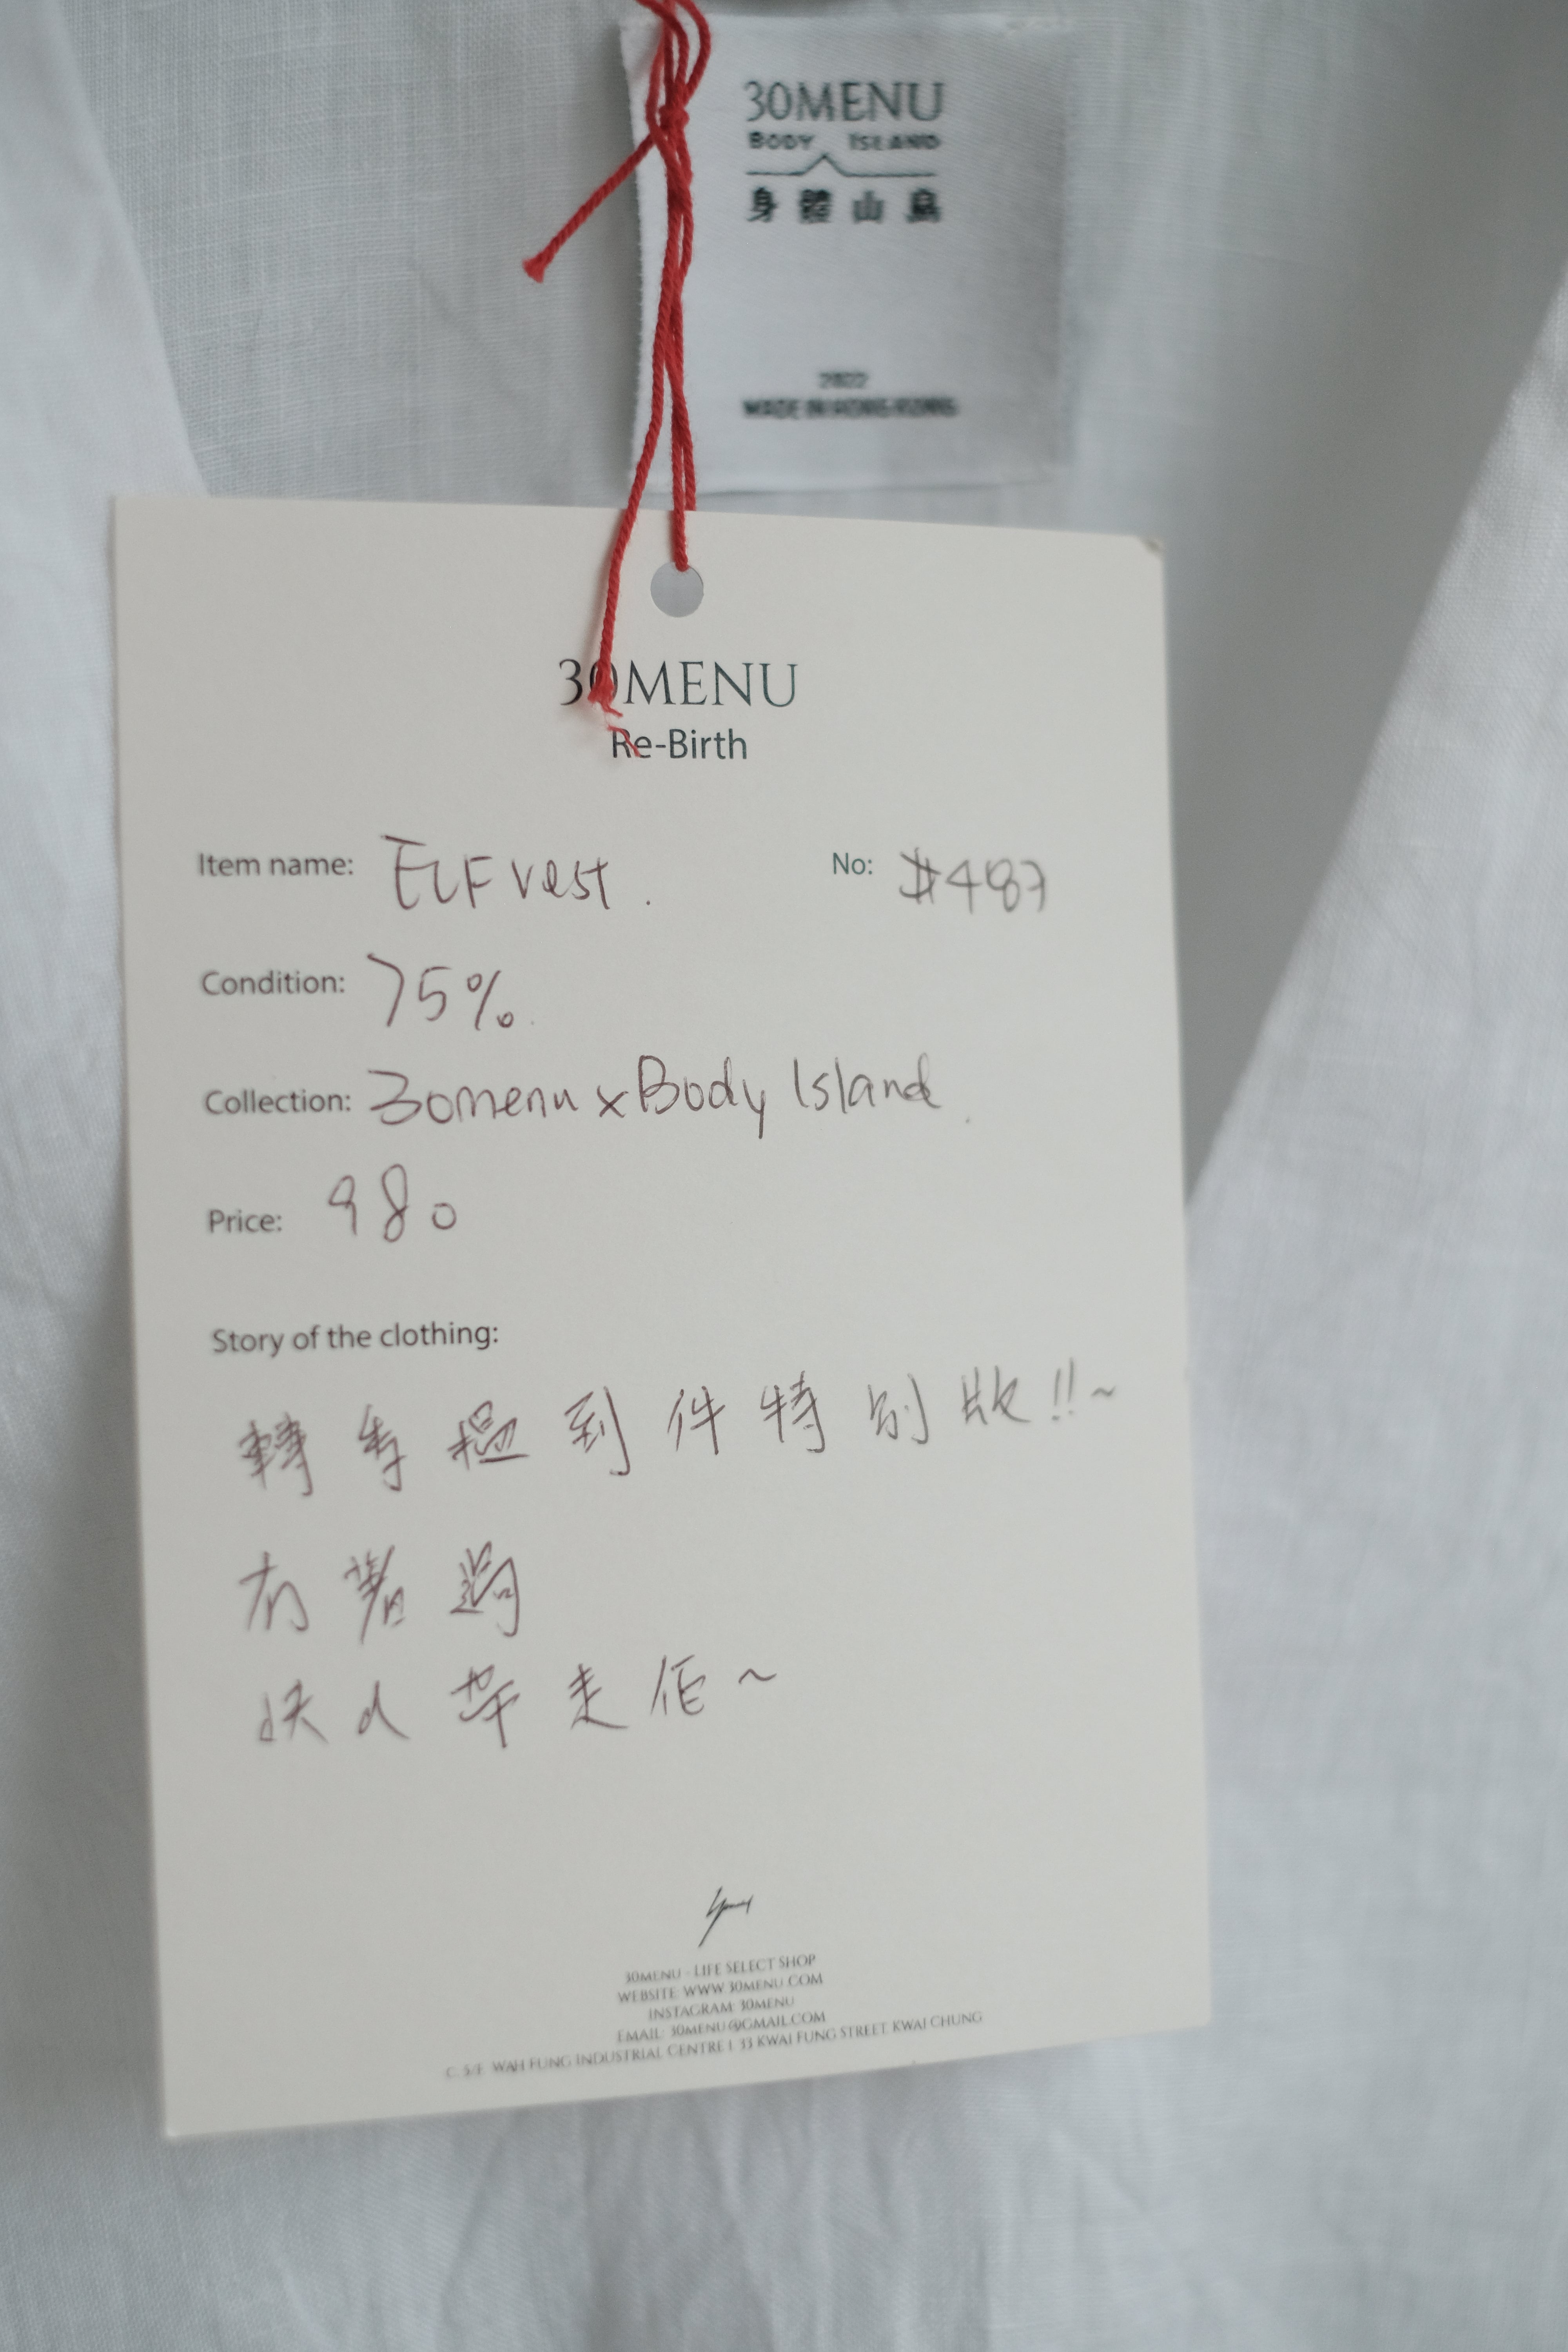 30MENU
BODY ISLAND
身體山島
2022
MADE IN HONG KONG
30MENU
Re-Birth
Item name: ELF vest. No: #487
Condition: 75%.
Collection: 30menu x Body Island.
Price: 980
Story of the clothing:
轉季搵到件特別版!!~
有著過
快d帶走佢~
30MENU - LIFE SELECT SHOP
WEBSITE: WWW.30MENU.COM
INSTAGRAM: 30MENU
EMAIL: 30MENU@GMAIL.COM
C, 5/F WAH FUNG INDUSTRIAL CENTRE I 33 KWAI FUNG STREET KWAI CHUNG